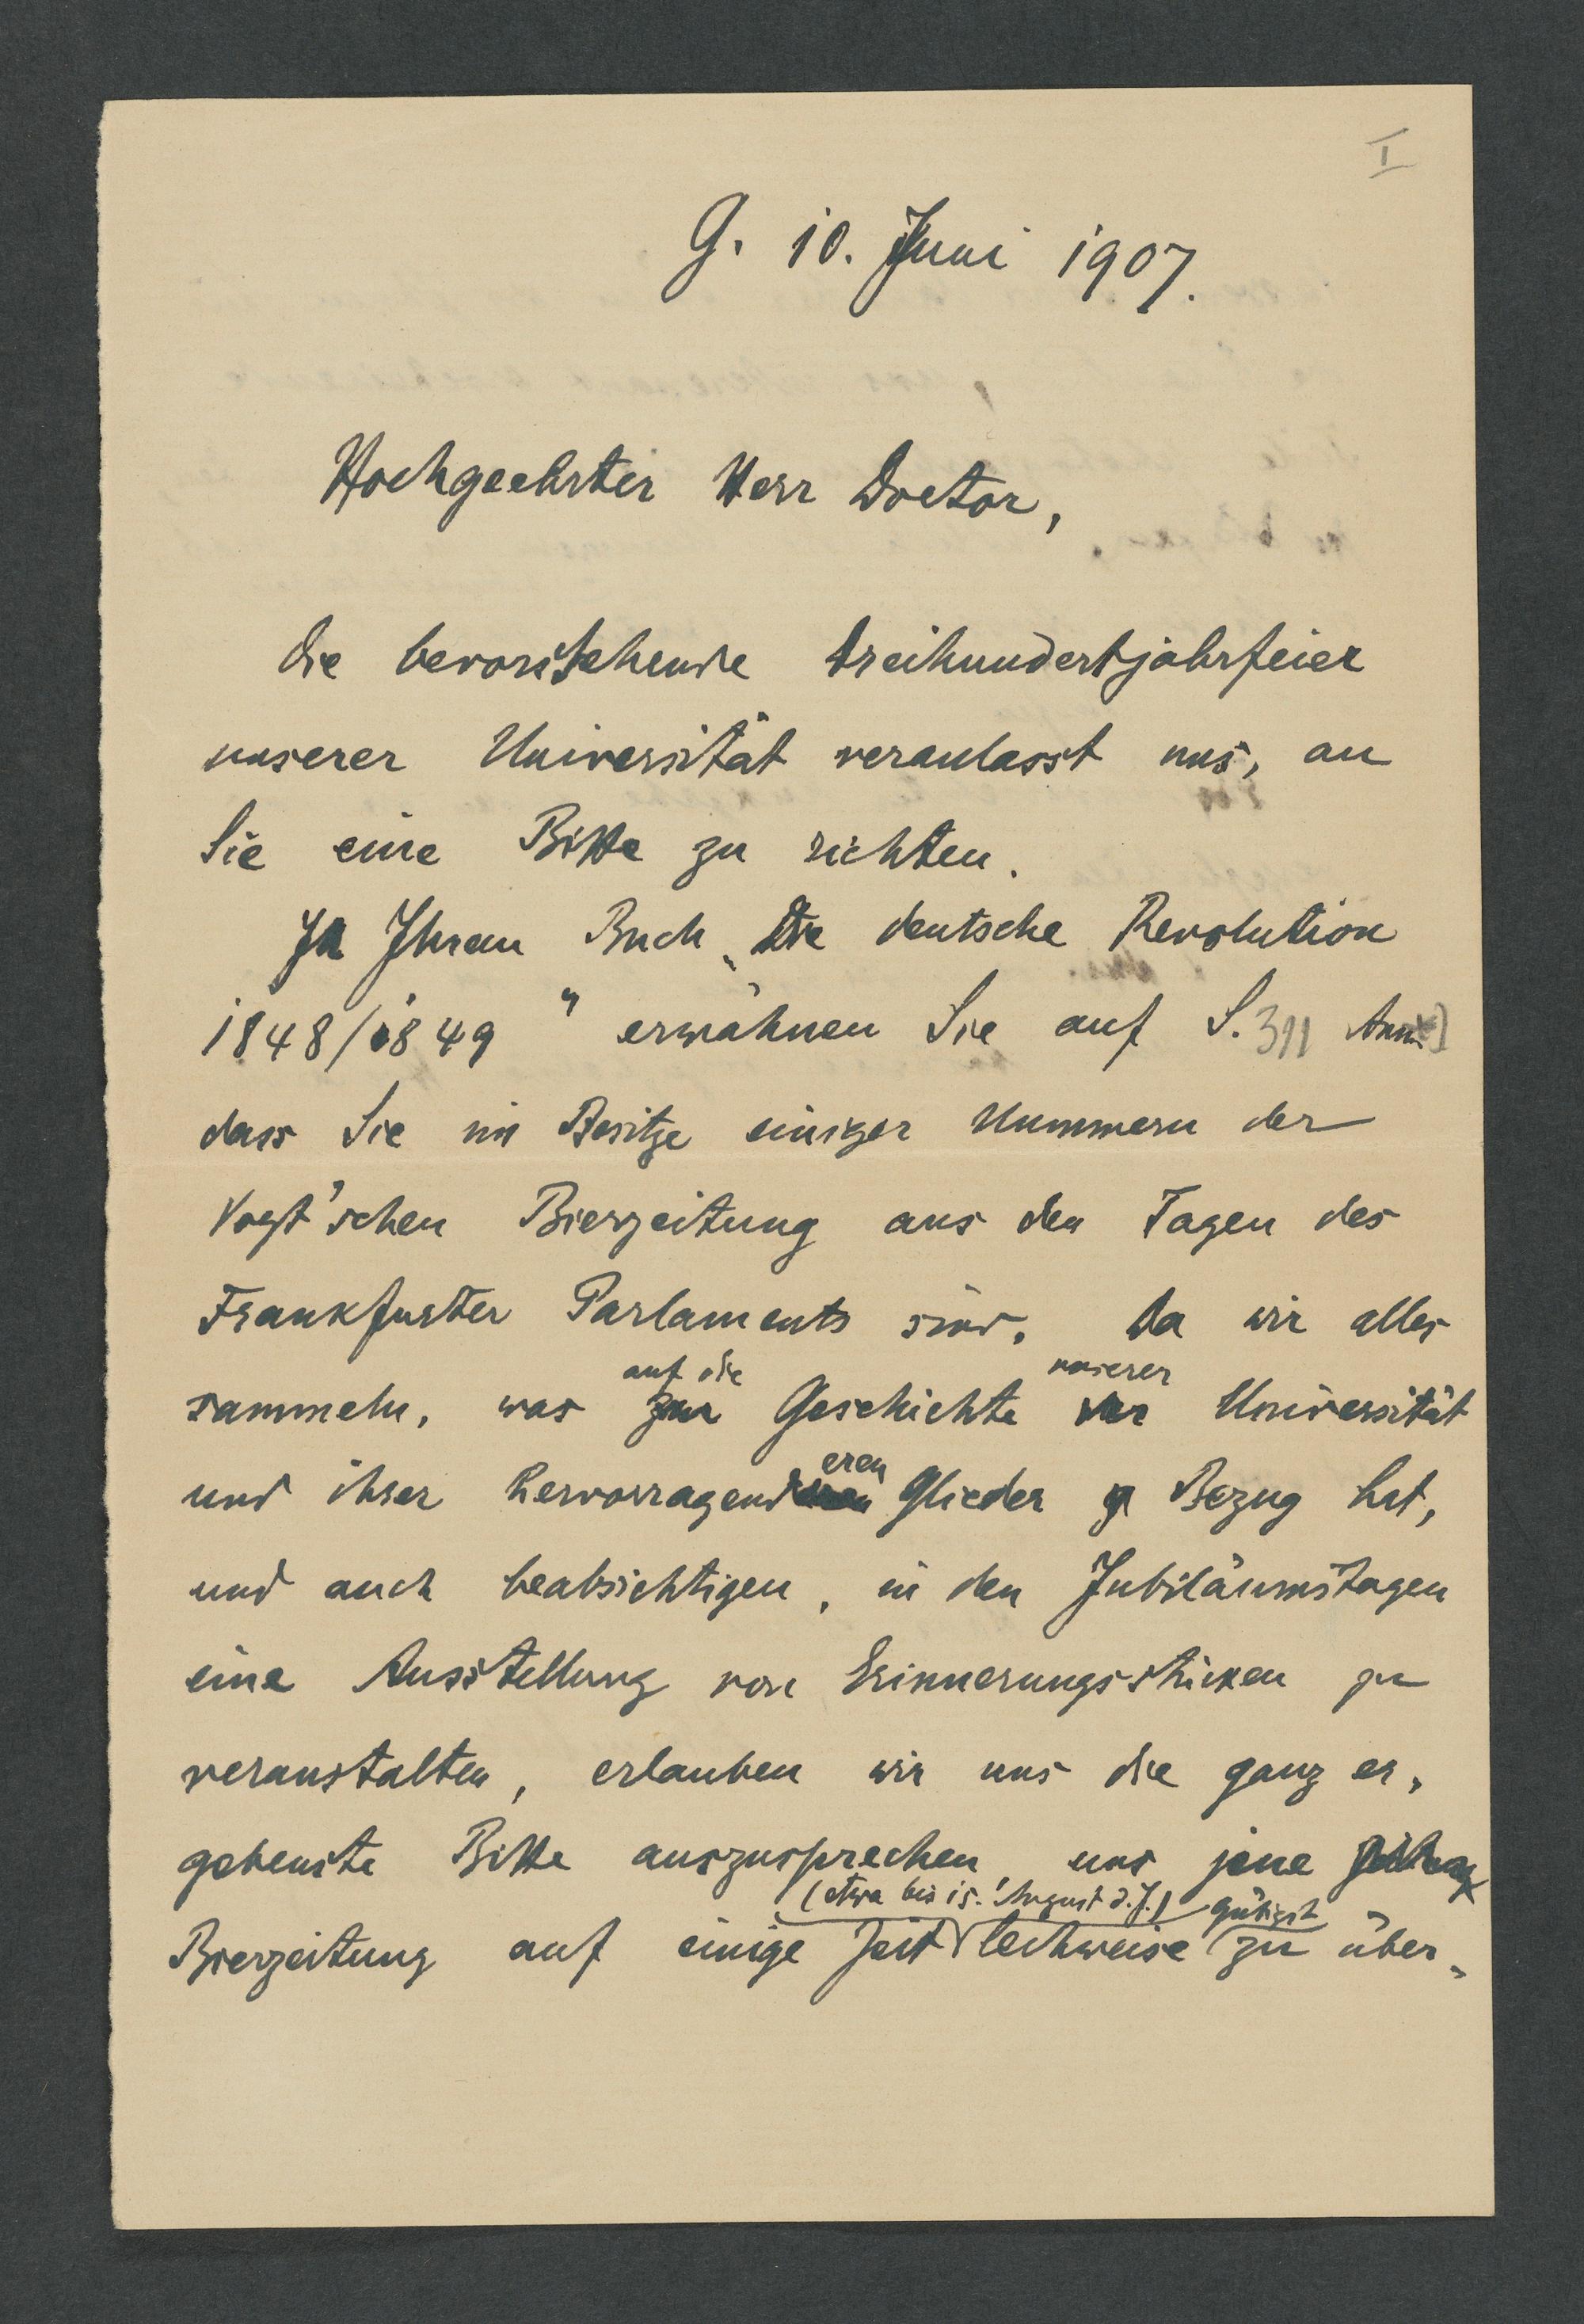 I
G. 10. Juni 1907.
Hochgeehrter Herr Doctor,
die bevorstehende Dreihundertjahrfeier
unserer Universität veranlasst uns, an
Sie eine Bitte zu richten.
In Ihrem Buch „Die deutsche Revolution
1848/1849" erwähnen Sie auf S. 311 Anm
dass Sie im Besitze einiger Nummern der
Vogt'schen Bierzeitung aus den Tagen des
Frankfurter Parlaments sind. Da wir alles
auf die unserer
sammeln, was zur Geschichte der Universität
eren
und ihrer hervorragend Glieder Bezug hat,
und auch beabsichtigen, in den Jubiläumstagen
eine Ausstellung von Erinnerungsstücken zu
veranstalten, erlauben wir uns die ganz er-
gebenste Bitte auszusprechen uns jene
(etwa bis 15. August d. J.) gütigst
Bierzeitung auf einige Zeit leihweise zu über-